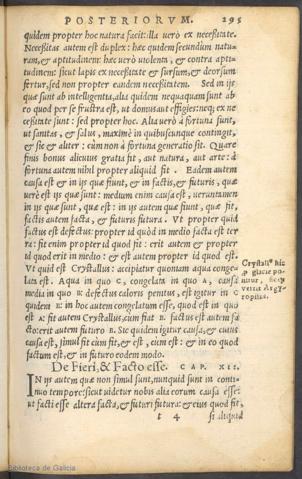 POSTERIORVM. 295
quidem propter hoc natura facit: illa verò ex necessitate.
Necessitas autem est duplex: hæc quidem secundùm natu-
ram, & aptitudinem: hæc verò violenta, & contra apti-
tudinem: sicut lapis ex necessitate & sursum, & deorsum
fertur, sed non propter eandem necessitatem. Sed in ijs
quæ sunt ab intelligentia, alia quidem nequaquam sunt ab
eo quod per se frustra est, ut domus aut effigies: neq; ex ne
cessitate sunt: sed propter hoc. Alia verò à fortuna sunt,
ut sanitas, & salus, maximè in quibuscunque contingit,
& sic & aliter: cùm non à fortuna generatio sit. Quare
finis bonus alicuius gratia fit, aut natura, aut arte: à
fortuna autem nihil propter aliquid fit. Eadem autem
causa est & in ijs quæ fiunt, & in factis, & futuris, quæ
verò est ijs quæ sunt: medium enim causa est, veruntamen
in ijs quæ sunt, quæ est: in ijs autem quæ fiunt, quæ fit,
factis autem facta, & futuris futura. Vt propter quid
factus est defectus: propter id quòd in medio facta est ter
ra: fit enim propter id quod fit: erit autem & propter
id quod erit in medio: & est autem propter id quod est.
Vt quid est Crystallus: accipiatur quoniam aqua conge-
lata est. Aqua in quo C, congelata in quo A, causa
media in quo B: defectus caloris penitus, est igitur in C
quidem B: in hoc autem congelatum esse, quod est in quo
est A: fit autem Crystallus, cùm fiat B. factus est autem fa
cto: erit autem futuro B. Sic quidem igitur causa, & cuius
causa est, simul fit cùm fit, & est, cùm est: & in eo quod
factum est, & in futuro eodem modo.
Crystall⁹ hic
p glacie po-
nitur,
versa Argy-
ropilus.
De Fieri, & Facto esse. CAP. XII.
IN ijs autem quæ non simul sunt, nunquid sunt in conti-
nuo tempore: sicut uidetur nobis alia eorum causa esse:
ut facti esse altera facta, & futuri futura: & eius quod fit,
t 4 si aliquid
Biblioteca de Galicia